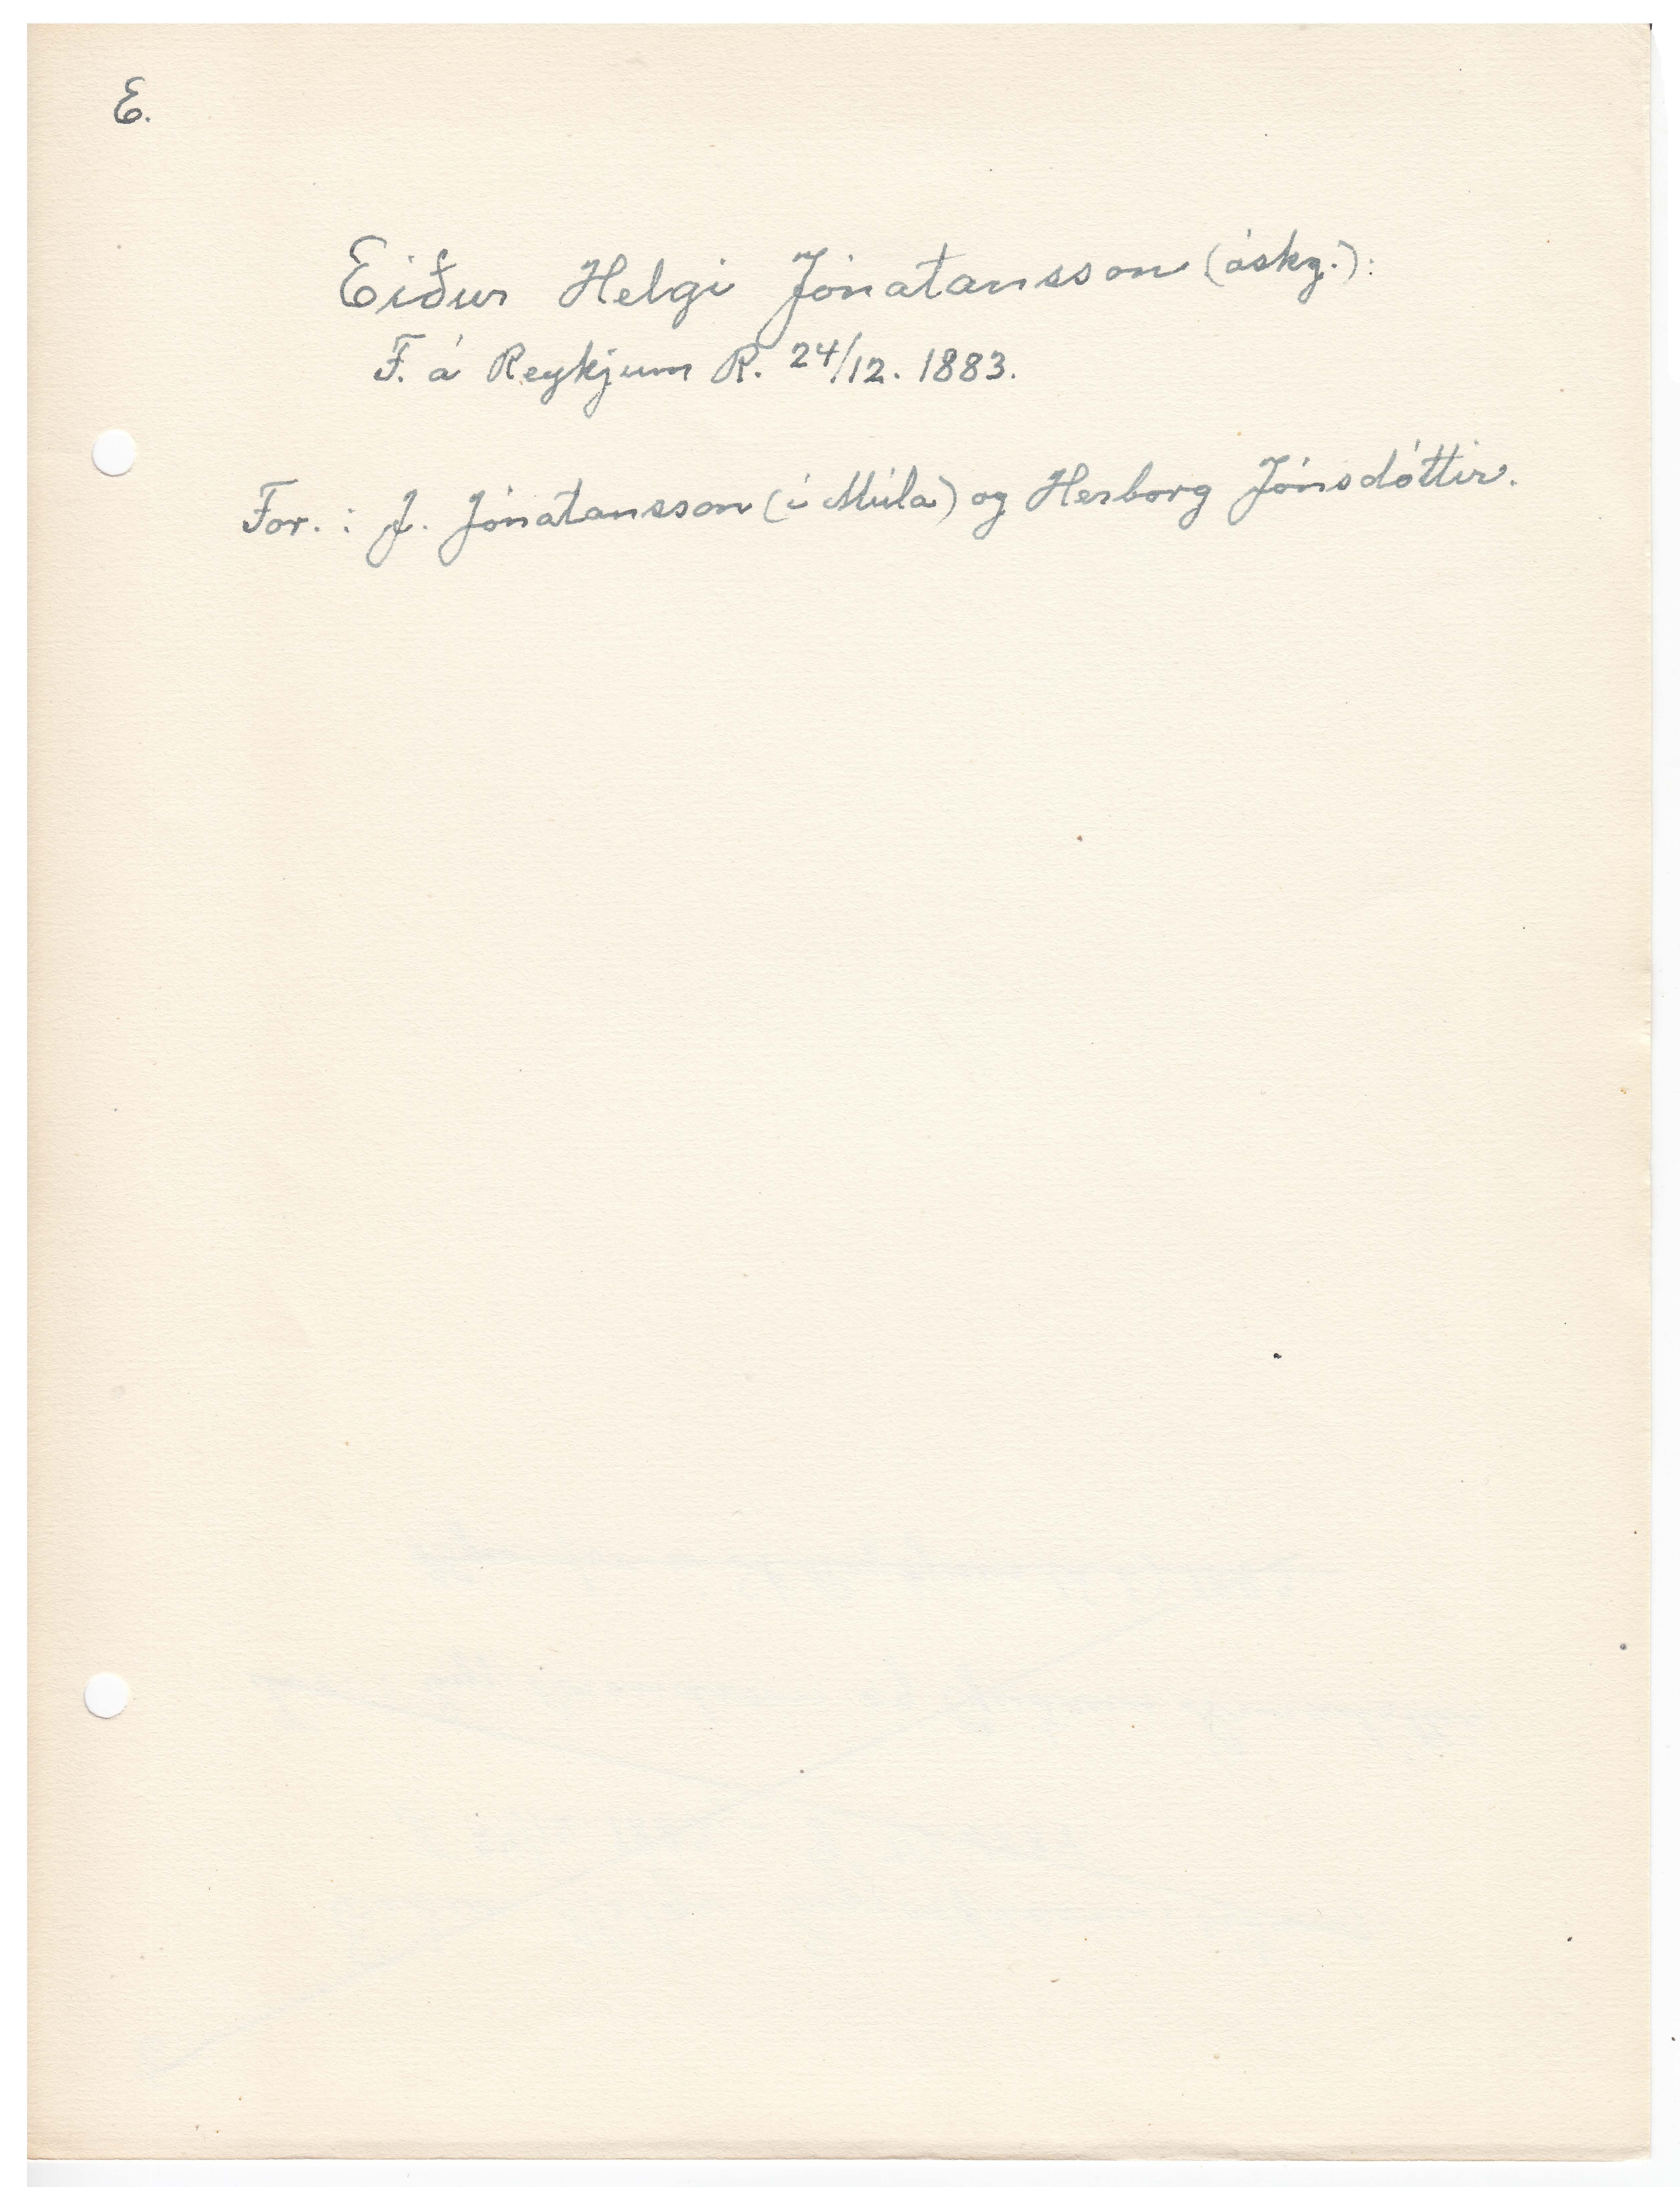 E.
Eiður Helgi Jónatansson (óskg.):
F. á Reykjum R. 24/12. 1883.
For. : J. Jónatansson (í Múla) og Herborg Jónsdóttir.